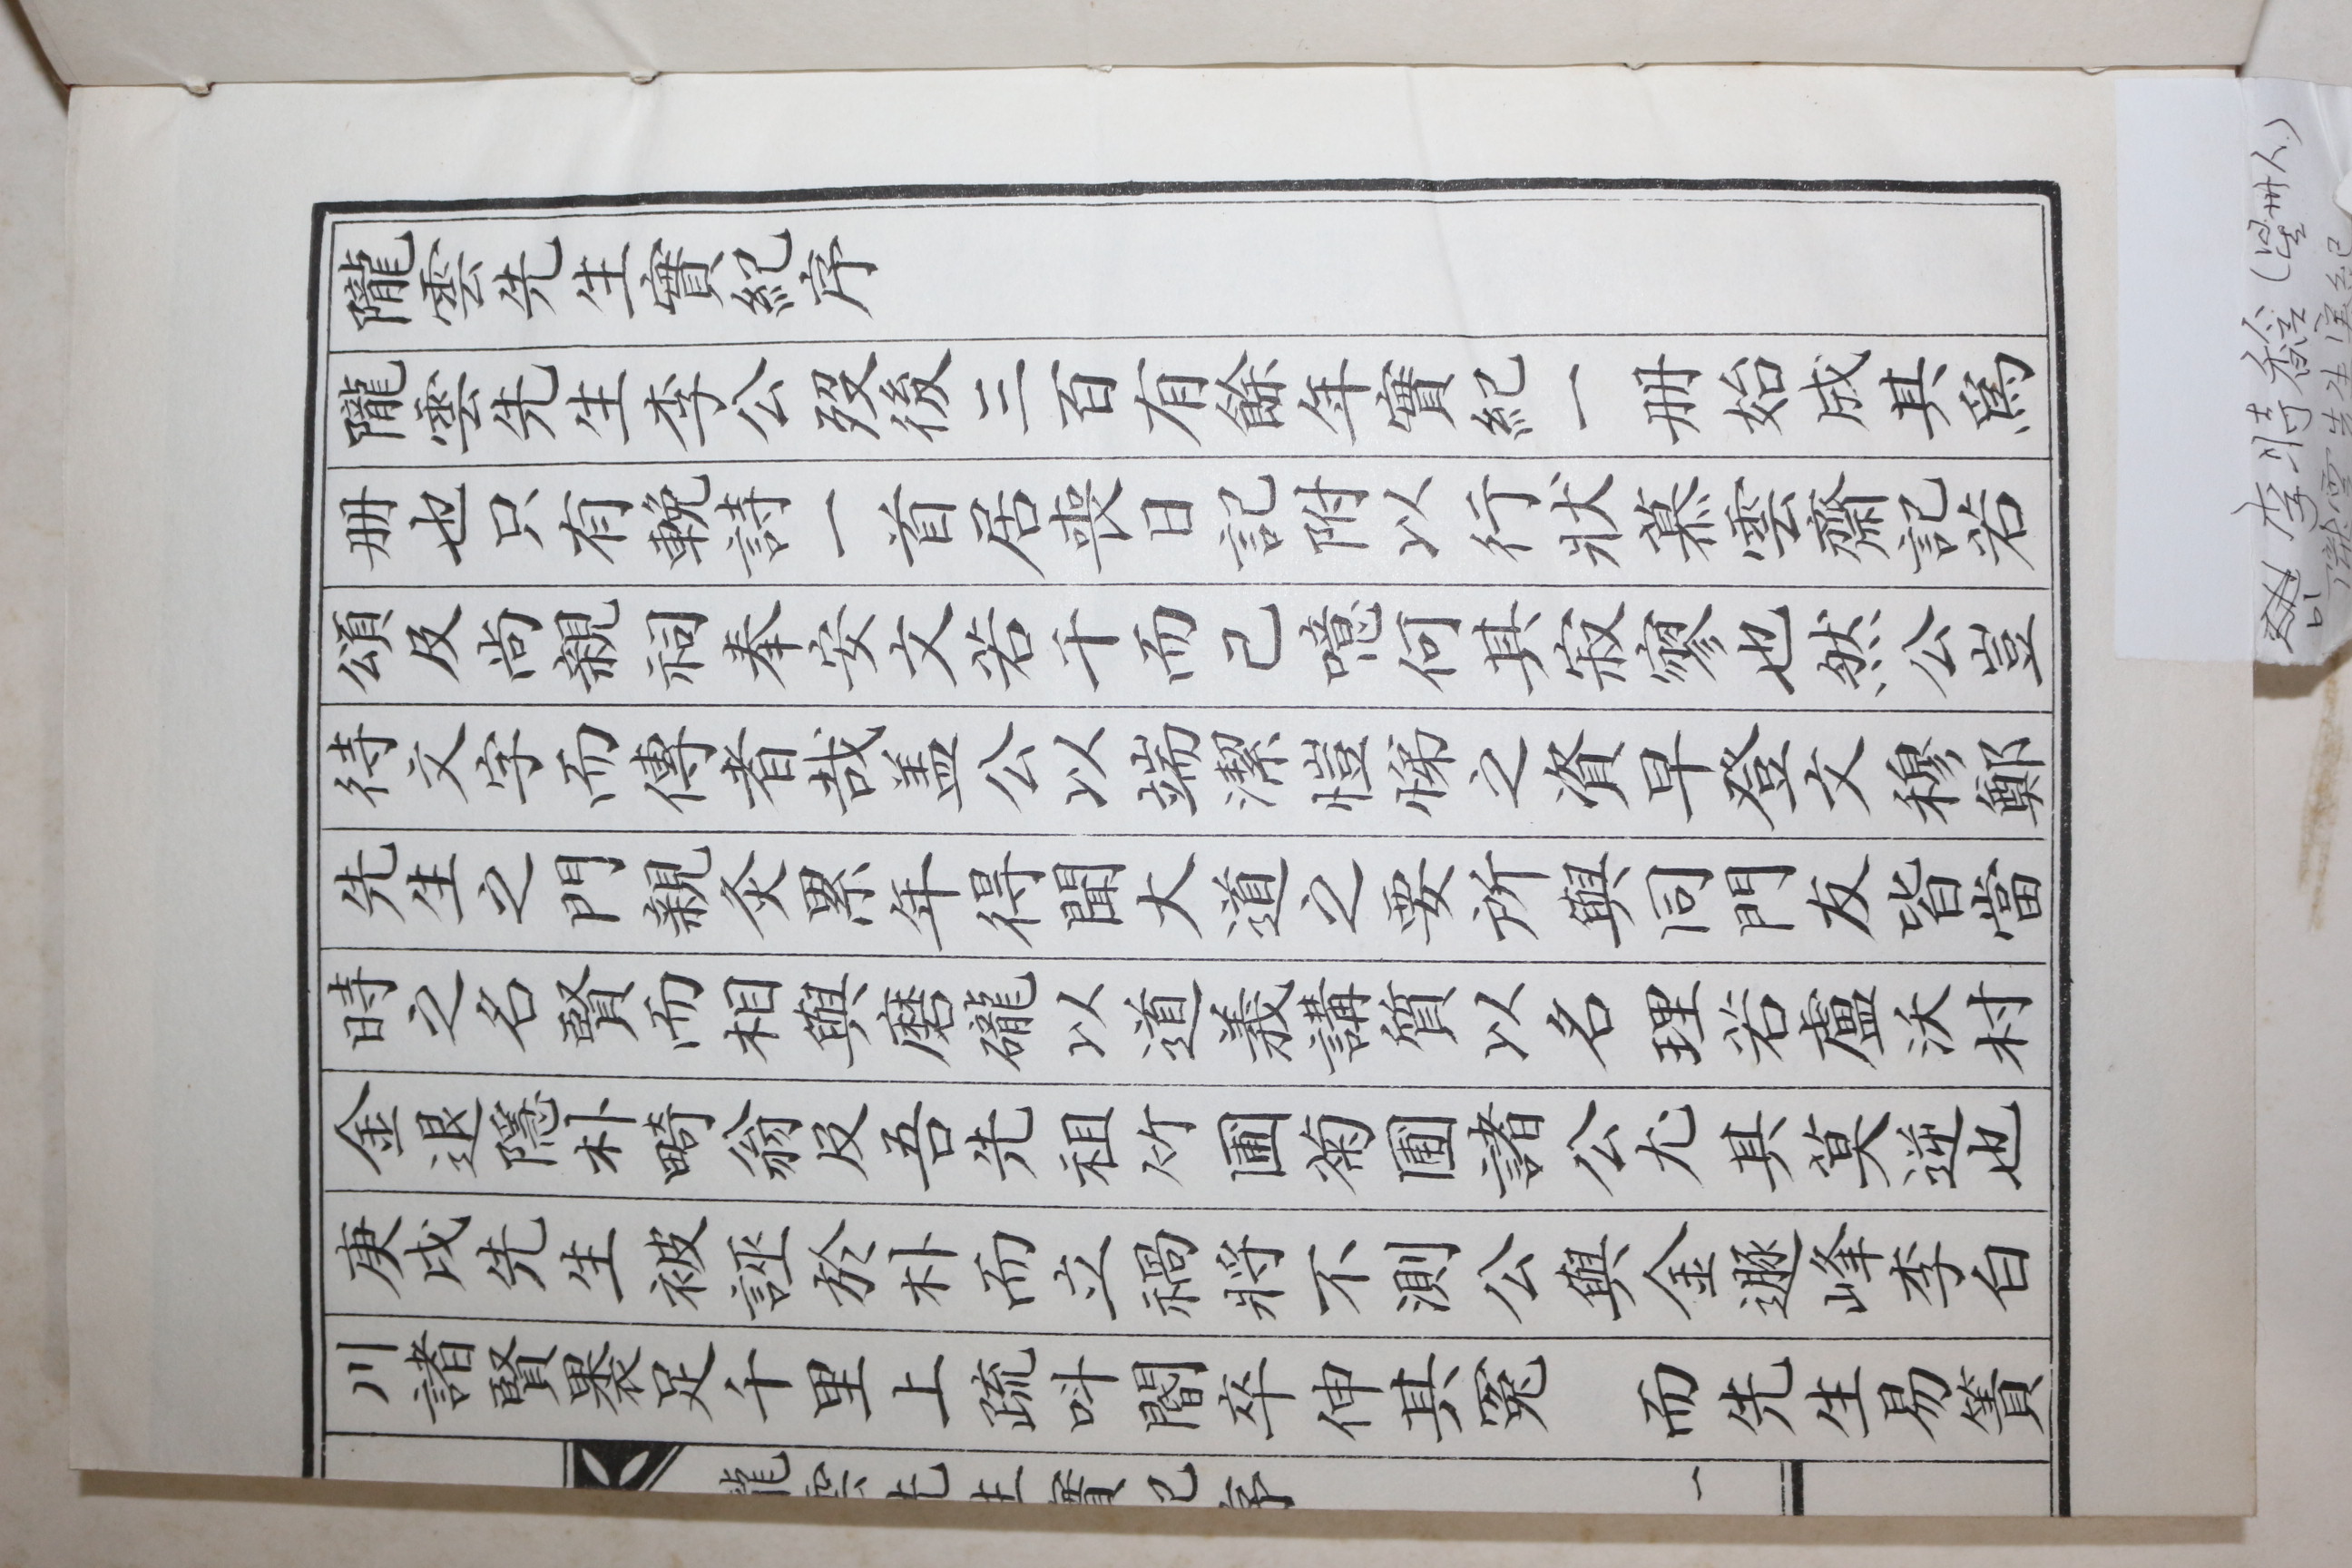 隴雲先生實紀序
隴雲先生李公歿後三百有餘年實紀一册始成其爲
册也只有輓詩一首居喪日記附以行狀慕雲齋記若
頌及尚親祠奉安文若干而已噫何其寂寥也然公豈
待文字而傳者哉盖公以端潔愷悌之資早登文穆鄭
先生之門親炙累年得聞大道之要所與同門友皆當
時之名賢而相與磨礲以道義講質以名理若盧沃村
金退隱朴畸翁及吾先祖竹圃菊圃諸公尤其莫逆也
庚戌先生被誣於朴而立禍將不測公與金遯峰李白
川諸賢褁足千里上疏呌閽卒伸其冤 而先生易簀
隴雲先生實紀序 一
李時馣
隴雲先生實紀